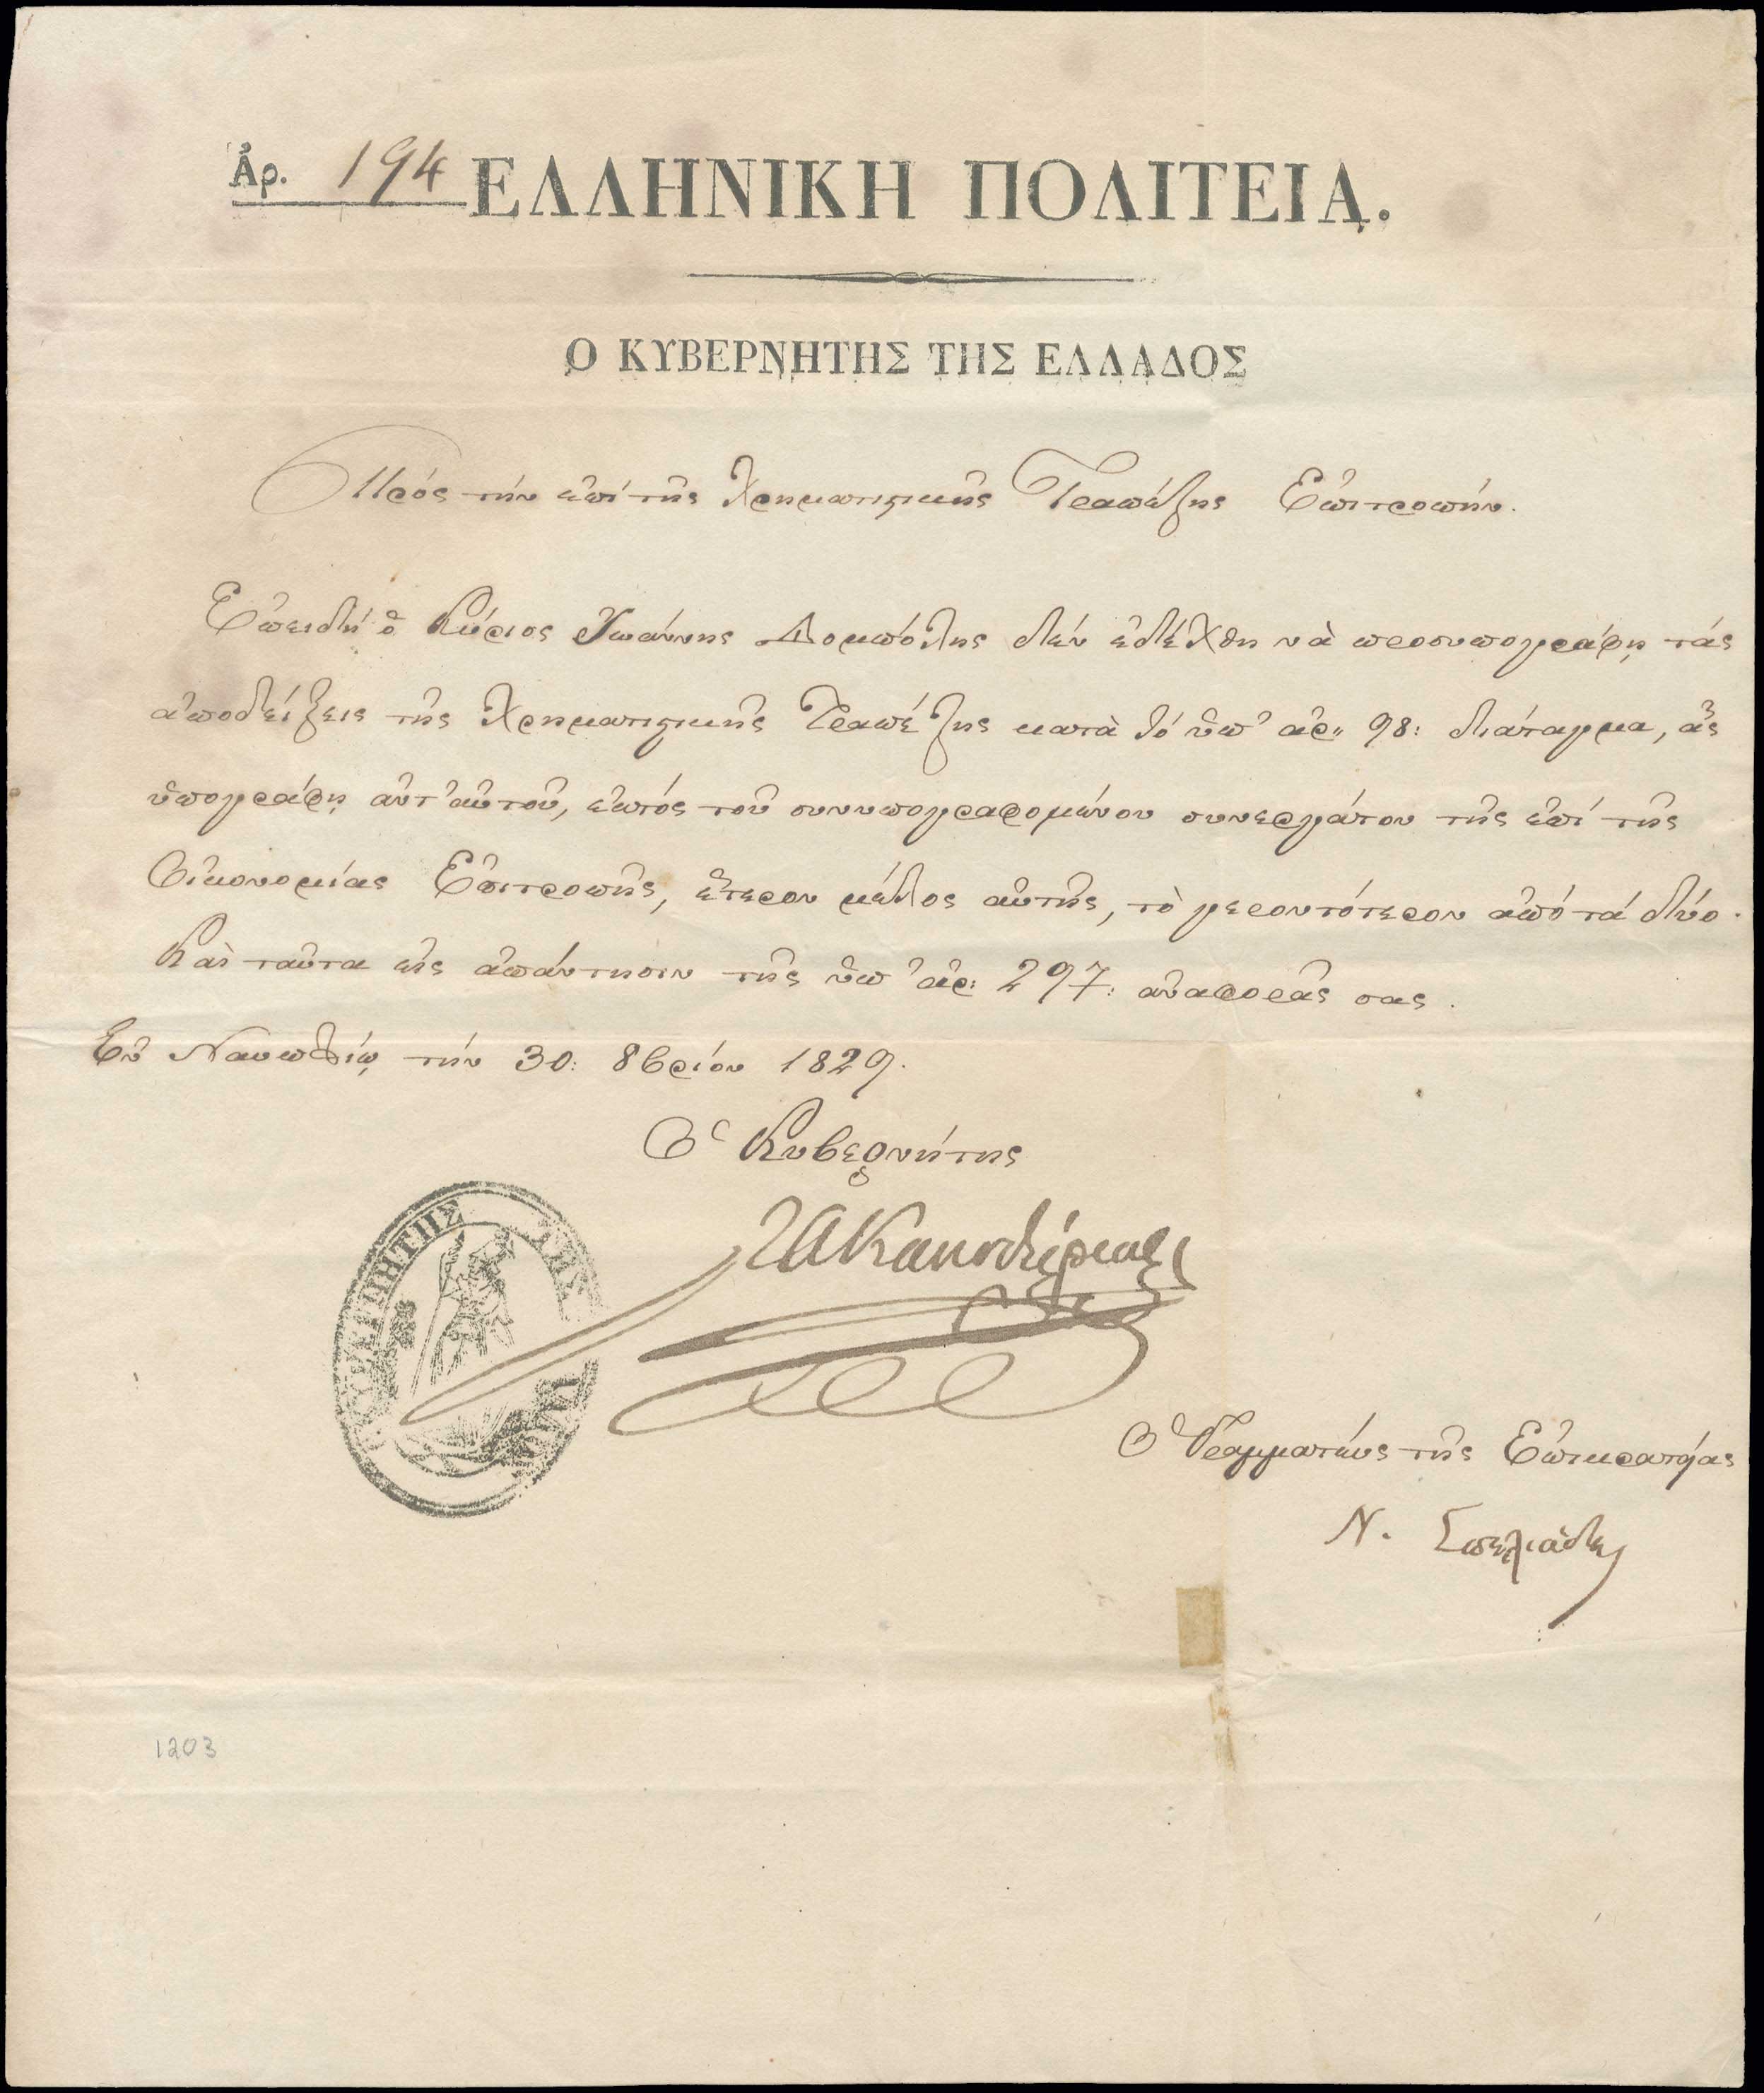 Ἀρ. 194 ΕΛΛΗΝΙΚΗ ΠΟΛΙΤΕΙΑ.
Ο ΚΥΒΕΡΝΗΤΗΣ ΤΗΣ ΕΛΛΑΔΟΣ
Πρός τήν ἐπί τῆς Χρηματιστικῆς Τραπέζης Ἐπιτροπήν.
Ἐπειδή ὁ Κύριος Ἰωάννης Δομπόλης δέν ἐδέχθη νὰ προσυπογράφῃ τάς
ἀποδείξεις τῆς Χρηματιστικῆς Τραπέζης κατὰ τό ὑπ' ἀρ. 98: διάταγμα, ἄς
ὑπογράφῃ ἀντ' αὐτοῦ, ἐκτός τοῦ συνυπογραφομένου συνεργάτου τῆς ἐπί τῆς
Οἰκονομίας Ἐπιτροπῆς, ἕτερον μέλος αὐτῆς, τὸ γεροντότερον ἀπό τά δύο.
Καὶ ταῦτα εἰς ἀπάντησιν τῆς ὑπ' ἀρ: 297: ἀναφορᾶς σας.
Ἐν Ναυπλίῳ τήν 30: 8βρίου 1829.
Ὁ Κυβερνήτης
ΙΑ Καποδίστριας
ΚΥΒΕΡΝΗΤΗΣ ΤΗΣ
Ὁ Γραμματεύς τῆς Ἐπικρατείας
Ν. Σπηλιάδης
1203